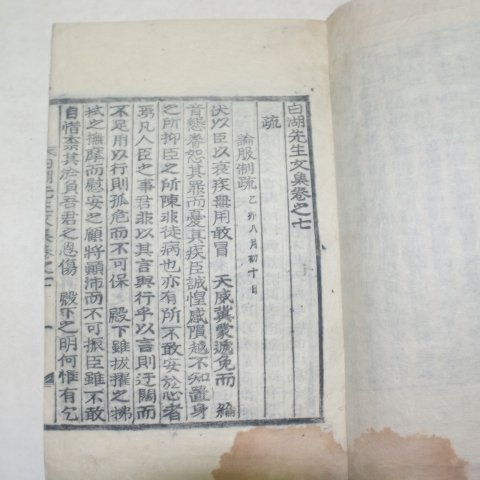 白湖先生文集卷之七
疏
論服制疏 乙卯八月初十日
伏以臣以衰疾無用敢冒 天威冀蒙遞免而 綸
音懇眷恕其罪而憂其疾臣誠惶感隕越不知置身
之所抑臣之所陳非徒病也亦有所不敢安於心者
焉凡人臣之事君非以其言與行乎以言則迂闊而
不足用以行則孤危而不可保 殿下雖拔擢之拂
拭之撫摩而慰安之顧將顚沛而不可振臣雖不敢
自惜柰其於負吾君之恩傷 殿下之明何惟有乞
白湖先生文集卷之七